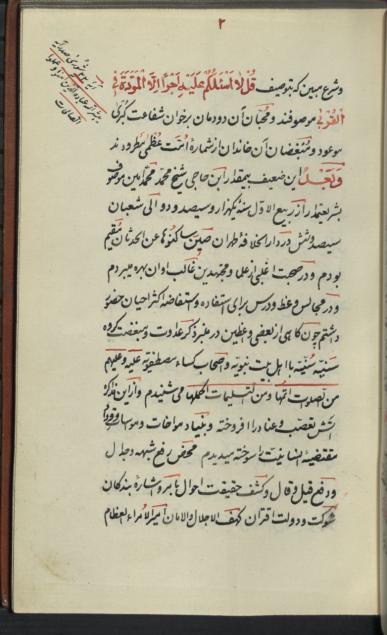 ٢
وشرع مبین که بتوصیف قُل لا اَسئَلُکُم عَلَیهِ اَجراً اِلَّا المَوَدَّةَ فِی
القُربی موصوفند و محبّان آن دودمان برخوان شفاعت کبری
موعود و مبغضان آن خاندان از شمارهٔ امّت عظمی مطرود ند
وَ بَعد این ضعیف بیمقدار ابن حاجی شیخ محمد محمد امین موصوف
بشریعتمدار از ربیع الاوّل سنه یکهزار و سیصد و دو الی شعبان
سیصد و شش در دار الخلافهٔ طهران صین ساکنوها عن الحدثان مقیم
بودم و در صحبت اغلبی از علما و مجتهدین غالب اوان بهره میبردم
و در مجالس وعظ و درس برای استفاده و استفاضه اکثر احیان حضور
داشتم چون گاهی از بعضی وعظین در منبر ذکر عداوت و مبغضت کروه
سنیّه سُنیّه با اهل بیت نبوّته و اصحاب کساء مصطفویّه علیه و علیهم
من الصلوت اتمّها و من التسلیمات اکملها می شنیدم و از این مذاکره
آتش تعصّب و عناد را افروخته و بنیاد مواخات و مواسات
مقتضیهٔ انسانیّت را سوخته میدیدم محض رفع شبهه و جدال
و دفع قیل و قال و کشف حقیقت احوال بامر و اشارهٔ بندکان
شوکت و دولت اقتران کهف الاجلال والامان امیر الامراء العظام